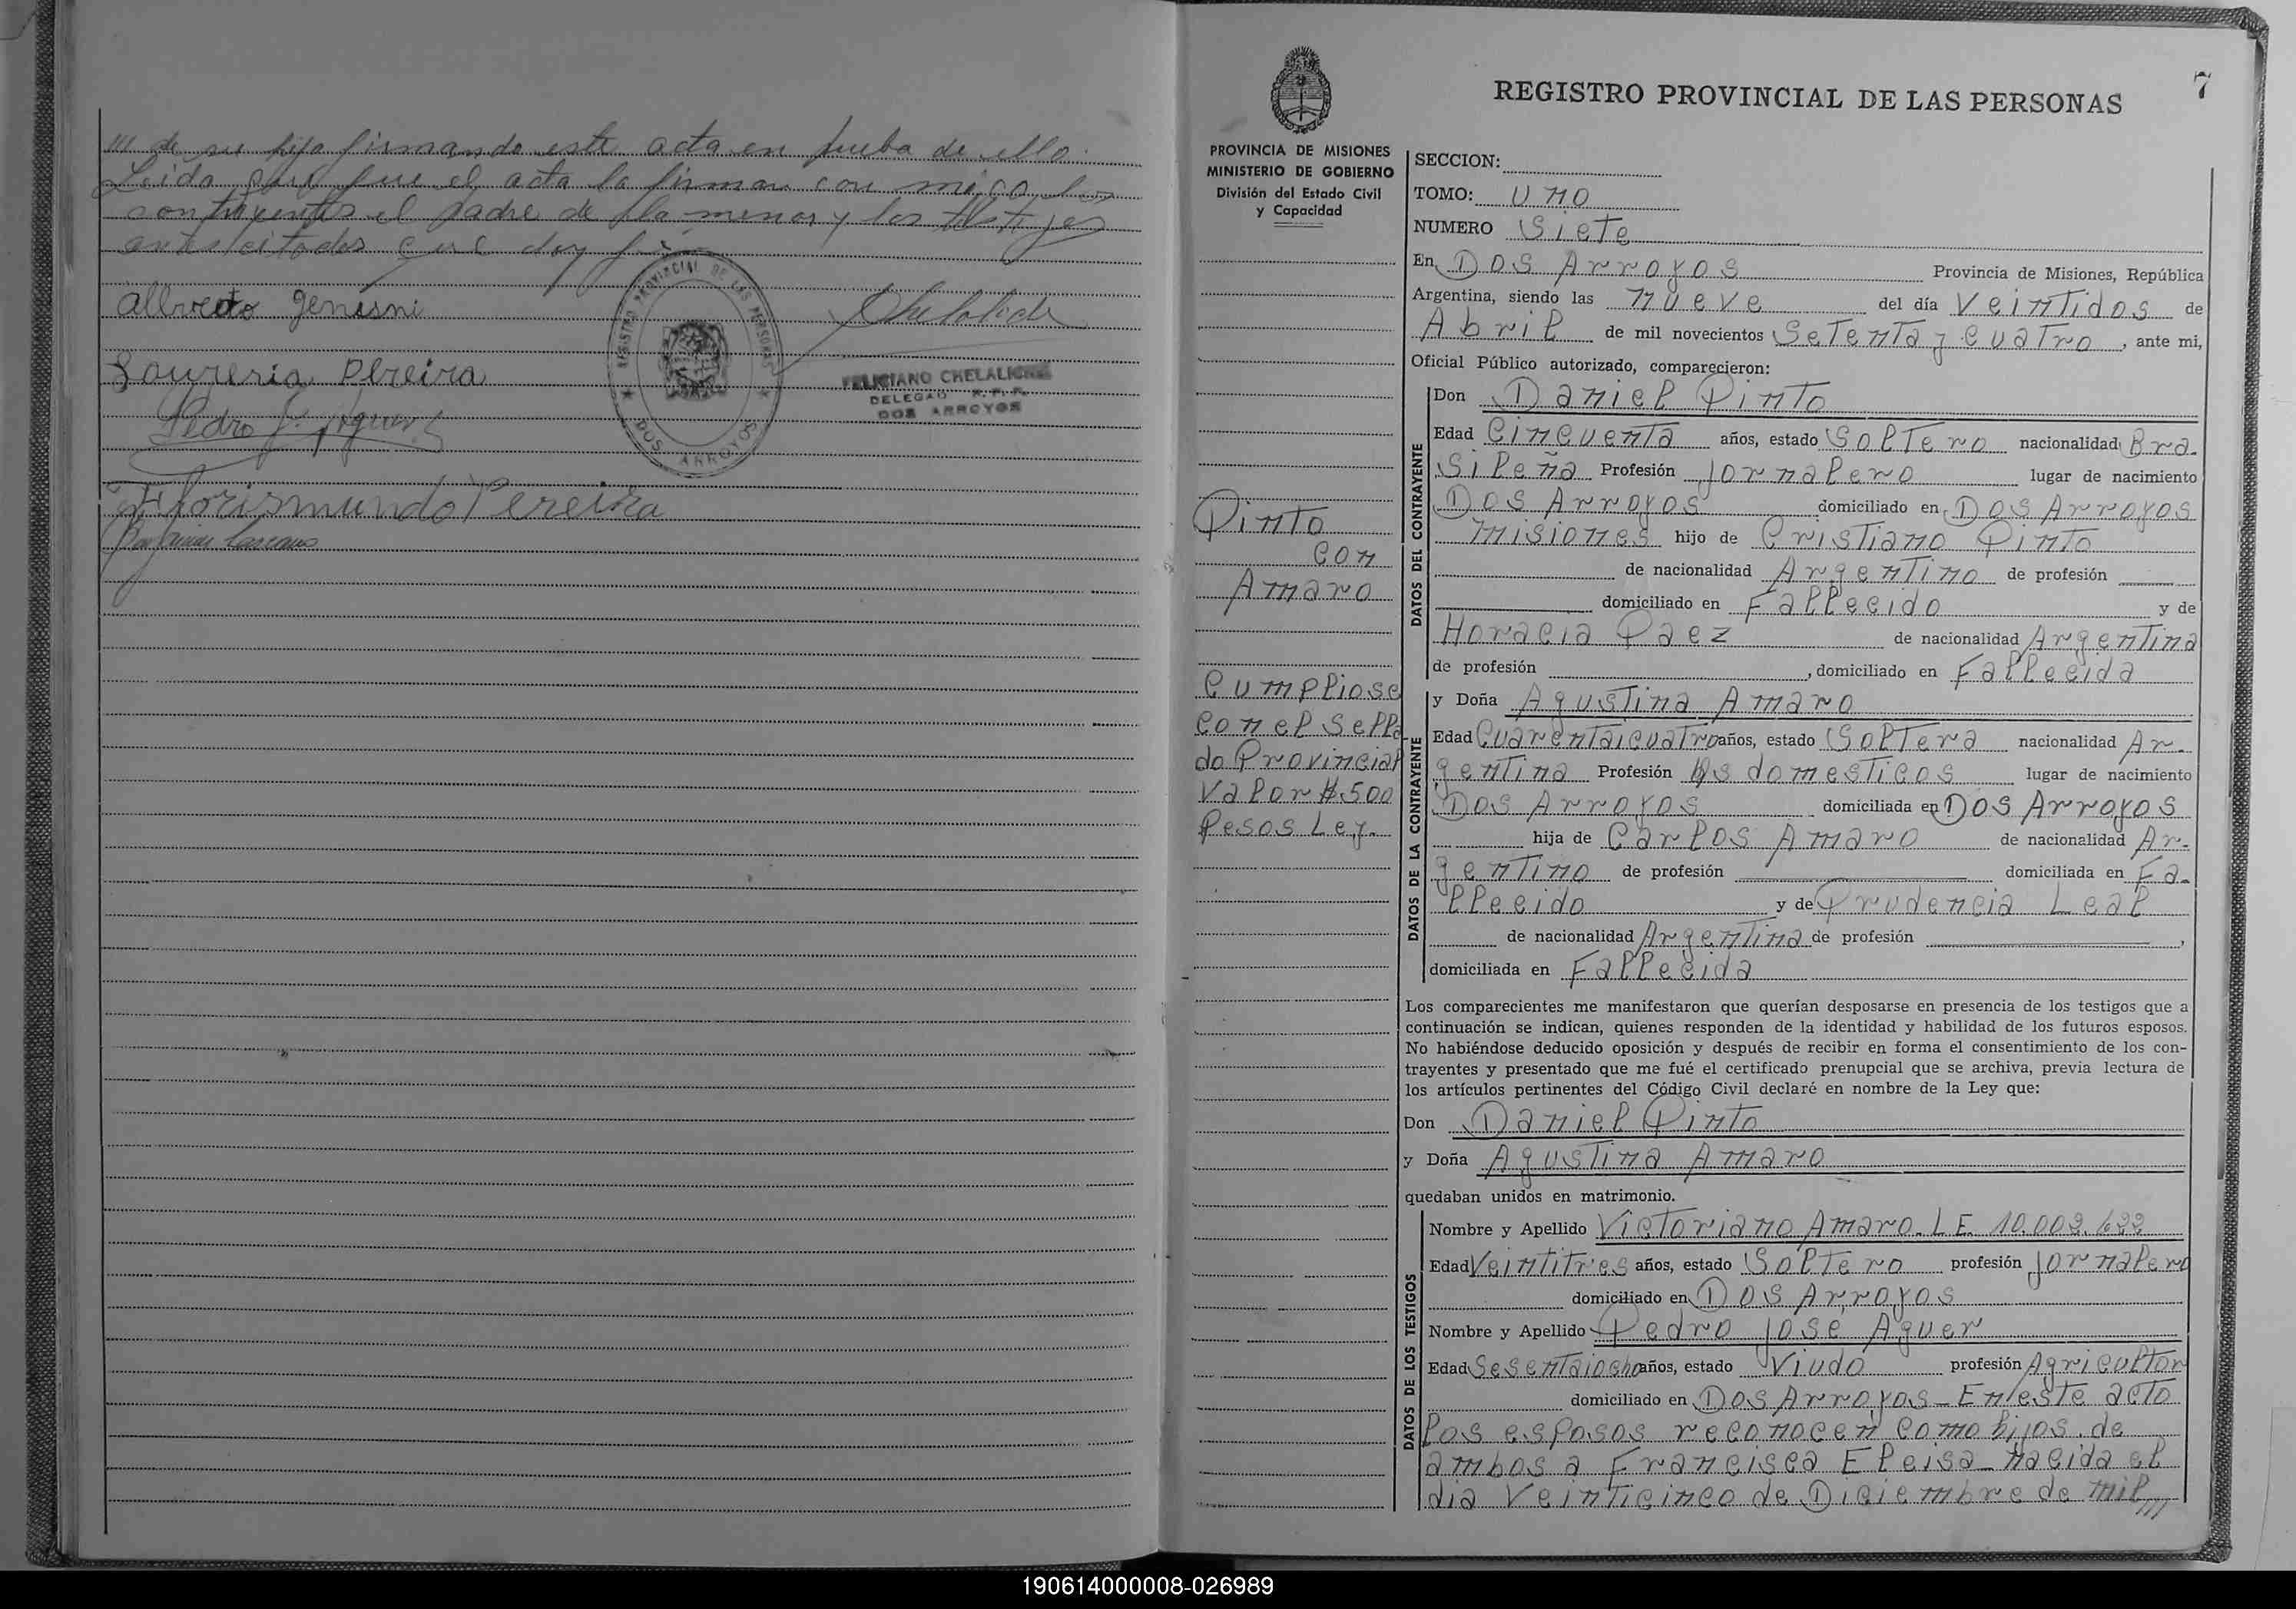 /// de su hija firmando este acta en prueba de ello.
Leida que fue el acta la firman con migo los
contrayentes el padre de la menor y los testigos
antes citados que doy fé
REGISTRO PROVINCIAL DE LAS PERSONAS
DOS ARROYOS
FELICIANO CHELALICHE
DELEGADO R.P.P.
DOS ARROYOS
Pereira
Pedro J. Aguer
Florismundo Pereira
7
REGISTRO PROVINCIAL DE LAS PERSONAS
PROVINCIA DE MISIONES
MINISTERIO DE GOBIERNO
División del Estado Civil
y Capacidad
Pinto
con
Amaro
Cumpliose
con el sella
do Provincial
valor $.500
Pesos Ley.
SECCION:
TOMO: Uno
NUMERO Siete
En Dos Arroyos Provincia de Misiones, República
Argentina, siendo las nueve del día Veintidos de
Abril de mil novecientos Setenta y cuatro, ante mi,
Oficial Público autorizado, comparecieron:
DATOS DEL CONTRAYENTE
Don Daniel Pinto
Edad Cincuenta años, estado Soltero nacionalidad Bra-
sileña Profesión Jornalero lugar de nacimiento
Dos Arroyos domiciliado en Dos Arroyos
misiones hijo de Cristiano Pinto
de nacionalidad Argentino de profesión
domiciliado en Fallecido y de
Horacia Paez de nacionalidad Argentina
de profesión , domiciliado en Fallecida
DATOS DE LA CONTRAYENTE
y Doña Agustina Amaro
Edad Cuarentaicuatro años, estado Soltera nacionalidad Ar-
gentina Profesión Qs domesticos lugar de nacimiento
Dos Arroyos domiciliada en Dos Arroyos
hija de Carlos Amaro de nacionalidad Ar-
gentino de profesión domiciliada en Fa-
llecido y de Prudencia Leal
de nacionalidad Argentina de profesión ,
domiciliada en Fallecida
Los comparecientes me manifestaron que querían desposarse en presencia de los testigos que a
continuación se indican, quienes responden de la identidad y habilidad de los futuros esposos.
No habiéndose deducido oposición y después de recibir en forma el consentimiento de los con-
trayentes y presentado que me fué el certificado prenupcial que se archiva, previa lectura de
los artículos pertinentes del Código Civil declaré en nombre de la Ley que:
Don Daniel Pinto
y Doña Agustina Amaro
quedaban unidos en matrimonio.
DATOS DE LOS TESTIGOS
Nombre y Apellido Victoriano Amaro. L.E. 10.002.622
Edad Veintitres años, estado Soltero profesión Jornalero
domiciliado en Dos Arroyos
Nombre y Apellido Pedro Jose Aguer
Edad Sesentaiocho años, estado Viudo profesión Agricultor
domiciliado en Dos Arroyos - En este acto
los esposos reconocen como hijos de
ambos a Francisca Eleisa - nacida el
dia Veinticinco de Diciembre de mil ///
190614000008-026989